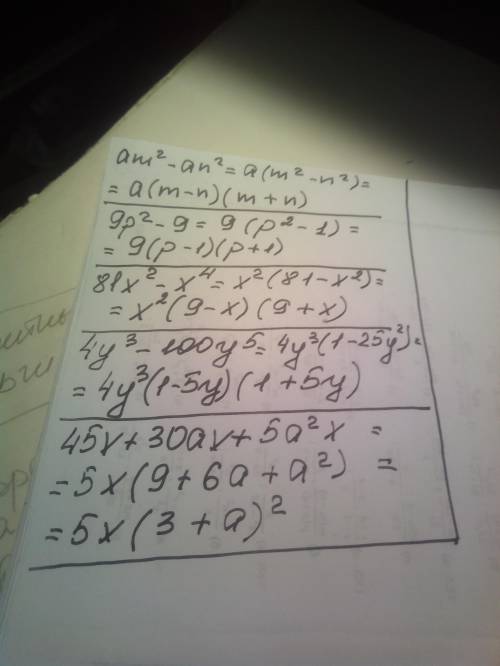 am² - an² = a(m² - n²) =
= a(m-n)(m+n)
9p² - 9 = 9(p² - 1) =
= 9(p-1)(p+1)
81x² - x⁴ = x²(81-x²) =
= x²(9-x)(9+x)
4y³ - 100y⁵ = 4y³(1-25y²) =
= 4y³(1-5y)(1+5y)
45x + 30ax + 5a²x =
= 5x(9+6a+a²) =
= 5x(3+a)²